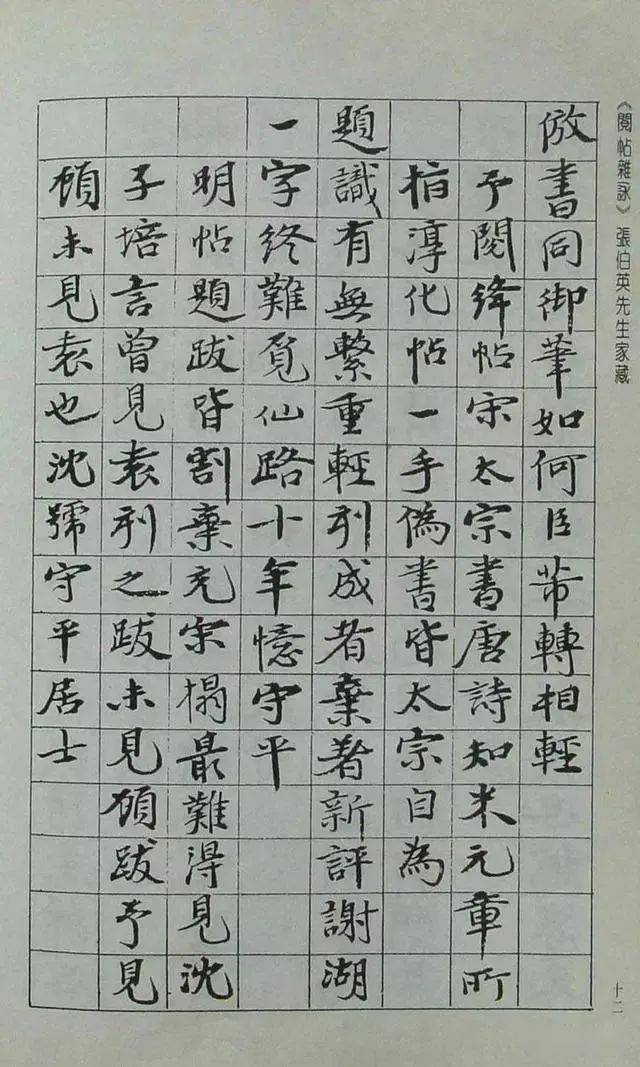 《閱帖雜詠》張伯英先生家藏
倣書同御筆如何臣芾轉相輕
予閱絳帖宋太宗書唐詩知米元章所
指淳化帖一手偽書皆太宗自為
題識有無繫重輕刊成者棄著新評謝湖
一字終難覓仙路十年憶守平
明帖題跋皆割棄充宋榻最難得見沈
子培言曾見袁刊之跋未見顧跋予見
顧未見袁也沈號守平居士
十二